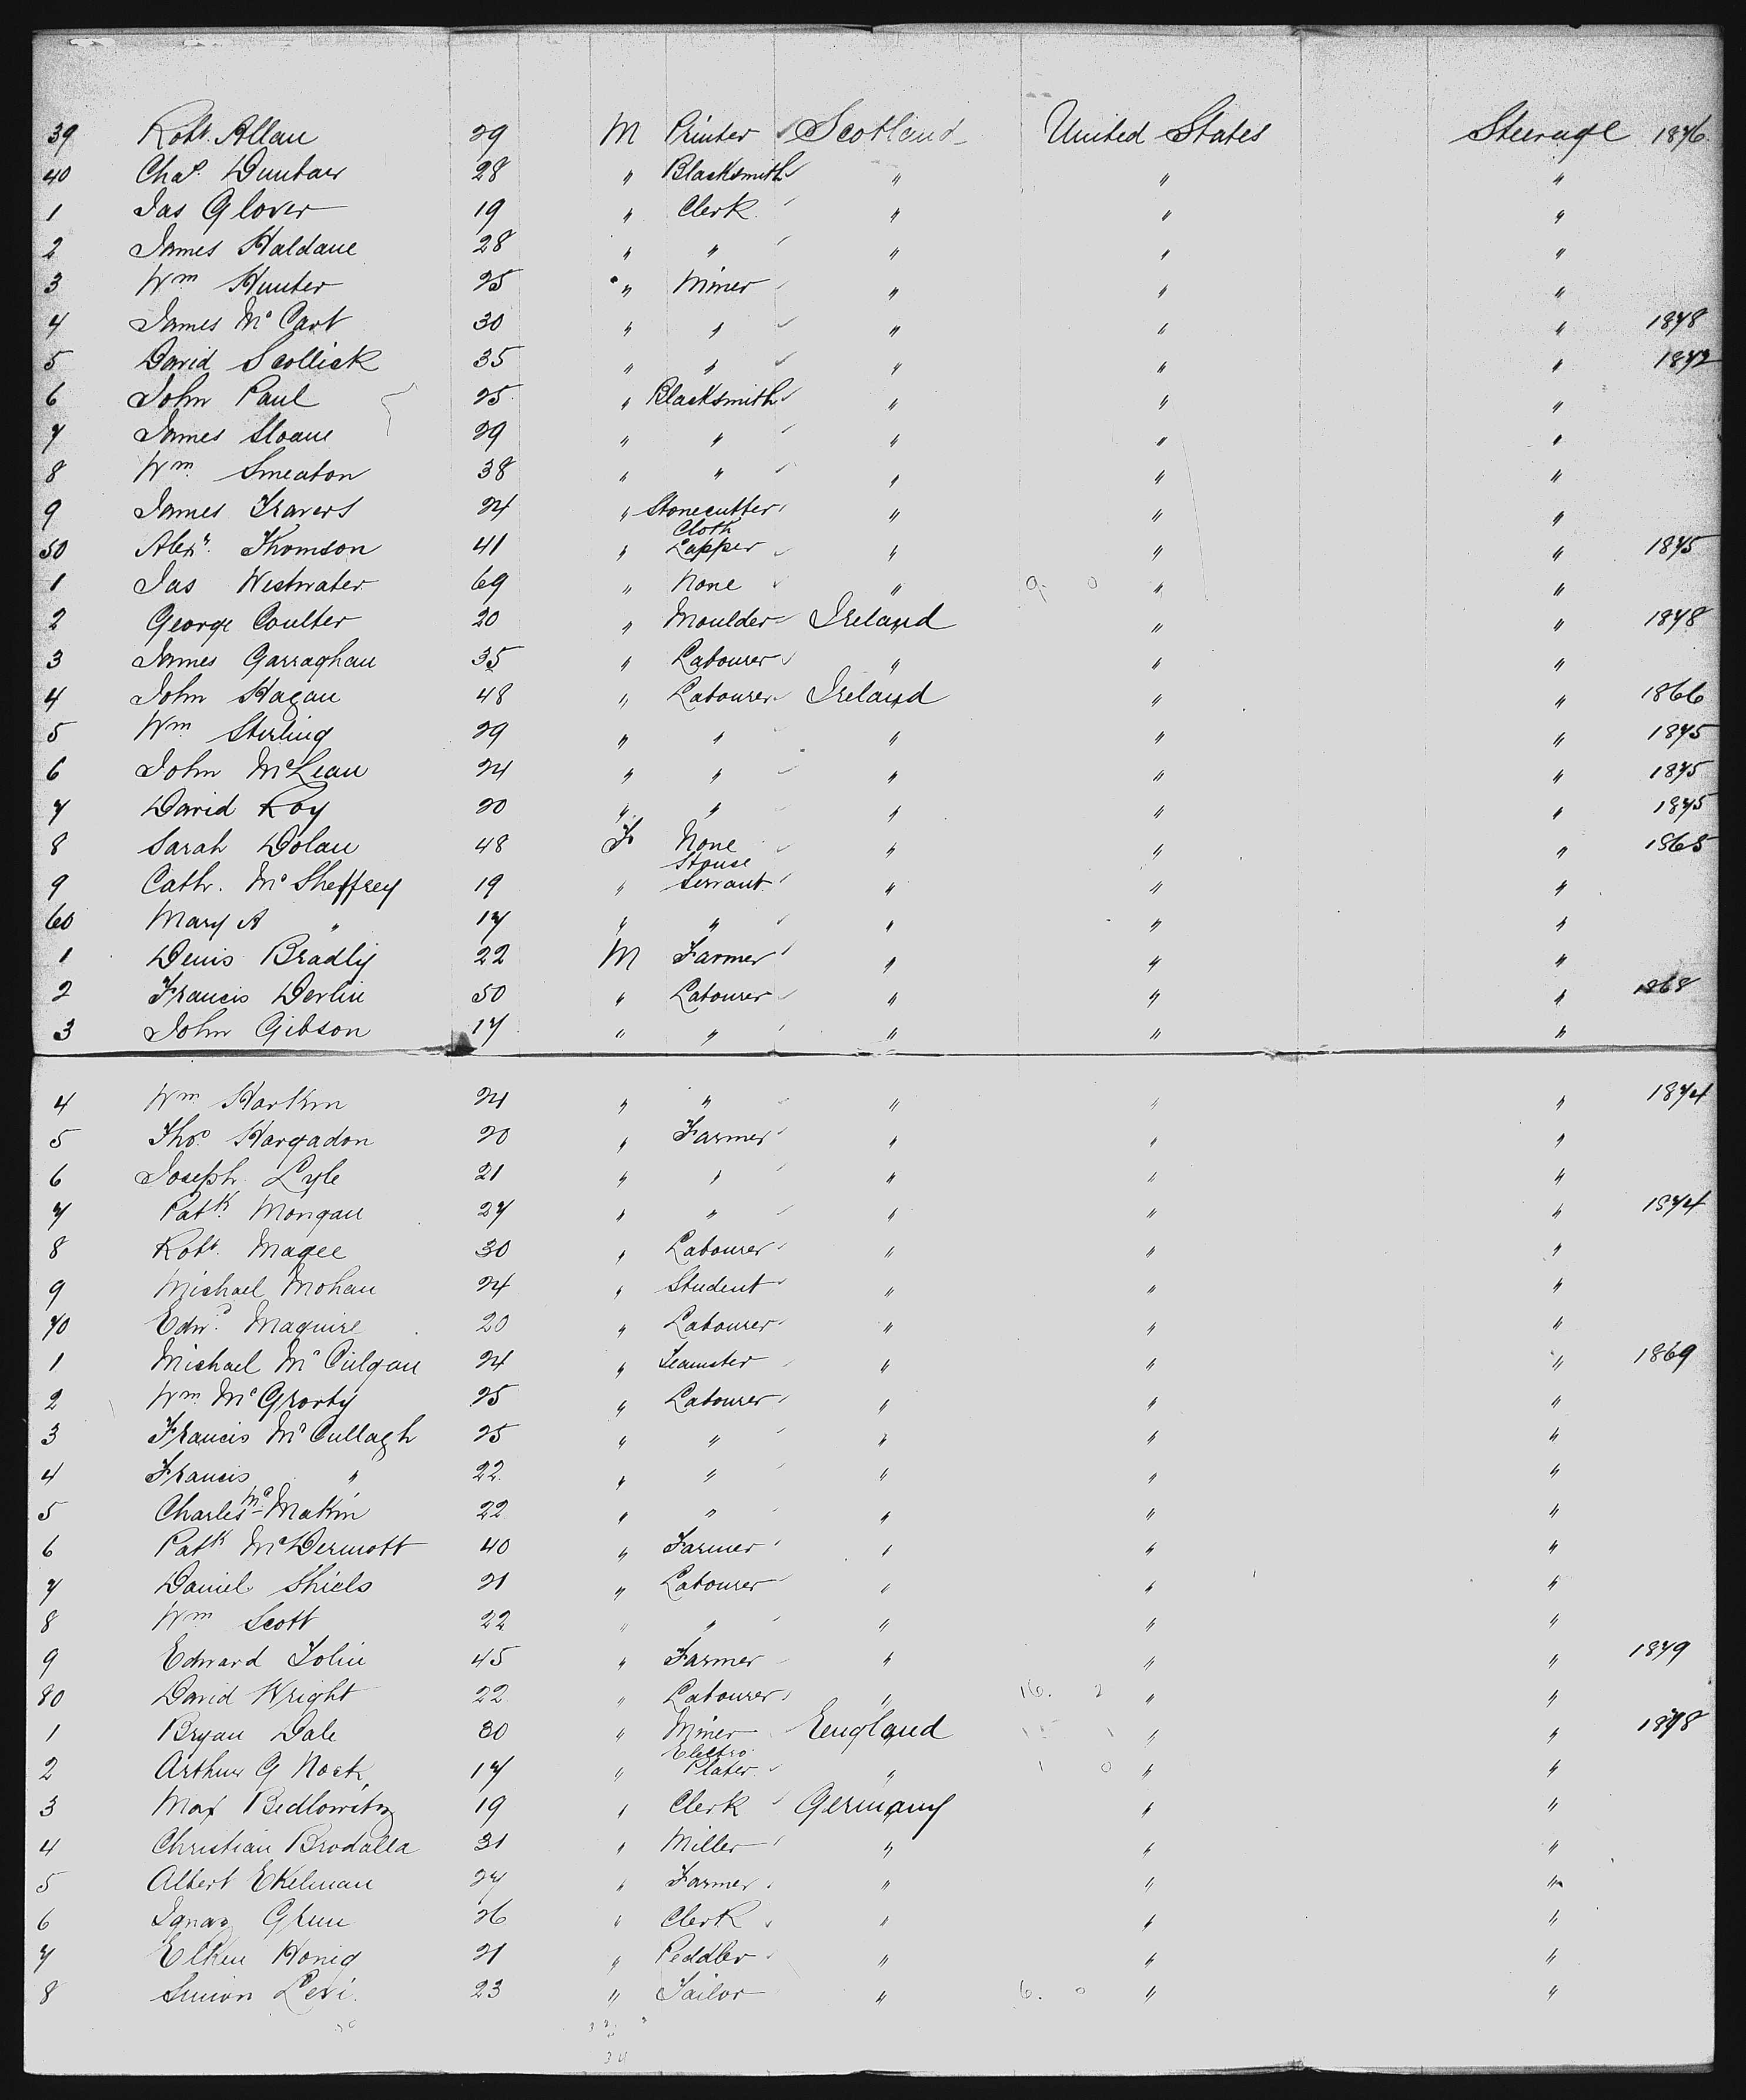 39 Robt. Allan 29 M Printer Scotland United States Steerage 1876
40 Chas. Dunbar 28 " Blacksmith " " "
1 Jas Glover 19 " Clerk " " "
2 James Haldane 28 " " " " "
3 Wm Hunter 25 " Miner " " "
4 James McCart 30 " " " " " 1878
5 David Scollick 35 " " " " " 1872
6 John Paul 25 " Blacksmith " " "
7 James Sloane 29 " " " " "
8 Wm Smeaton 38 " " " " "
9 James Travers 24 " Stonecutter " " "
50 Alexr. Thomson 41 " Cloth Lapper " " " 1875
1 Jas Westwater 69 " None " 9. 0 " "
2 George Coulter 20 " Moulder Ireland " " 1878
3 James Garraghan 35 " Labourer " " "
4 John Hagan 48 " Labourer Ireland " " 1866
5 Wm Sterling 29 " " " " " 1875
6 John McLean 24 " " " " " 1875
7 David Roy 20 " " " " " 1875
8 Sarah Dolan 48 F None " " " 1865
9 Cath. McSheffrey 19 " House Servant " " "
60 Mary A " 17 " " " " "
1 Denis Bradly 22 M Farmer " " "
2 Francis Devlin 50 " Labourer " " " 1868
3 John Gibson 17 " " " " "
4 Wm Harkin 24 " " " " " 1874
5 Thos. Hargadon 20 " Farmer " " "
6 Joseph Lyle 21 " " " " "
7 Patk. Mongan 27 " " " " " 1874
8 Robt. Magee 30 " Labourer " " "
9 Michael Mohan 24 " Student " " "
70 Edwd. Maguire 20 " Labourer " " "
1 Michael McCulgan 24 " Teamster " " " 1869
2 Wm McGrorty 25 " Labourer " " "
3 Francis McCullagh 25 " " " " "
4 Francis " 22 " " " " "
5 Charles McMakin 22 " " " " "
6 Patk McDermott 40 " Farmer " " "
7 Daniel Shiels 21 " Labourer " " "
8 Wm Scott 22 " " " " "
9 Edward Tolin 45 " Farmer " " " 1879
80 David Wright 22 " Labourer " 16. 2 " "
1 Bryan Dale 30 " Miner England " " 1878
2 Arthur G Nock 17 " Electro Plater " 1 0 " "
3 Max Bedlowitz 19 " Clerk Germany " "
4 Christian Brodalla 31 " Miller " " "
5 Albert Ekelman 27 " Farmer " " "
6 Ignaz Grun 26 " Clerk " " "
7 Elken Honig 21 " Peddler " " "
8 Simon Levi 23 " Tailor " 6. 0 " "